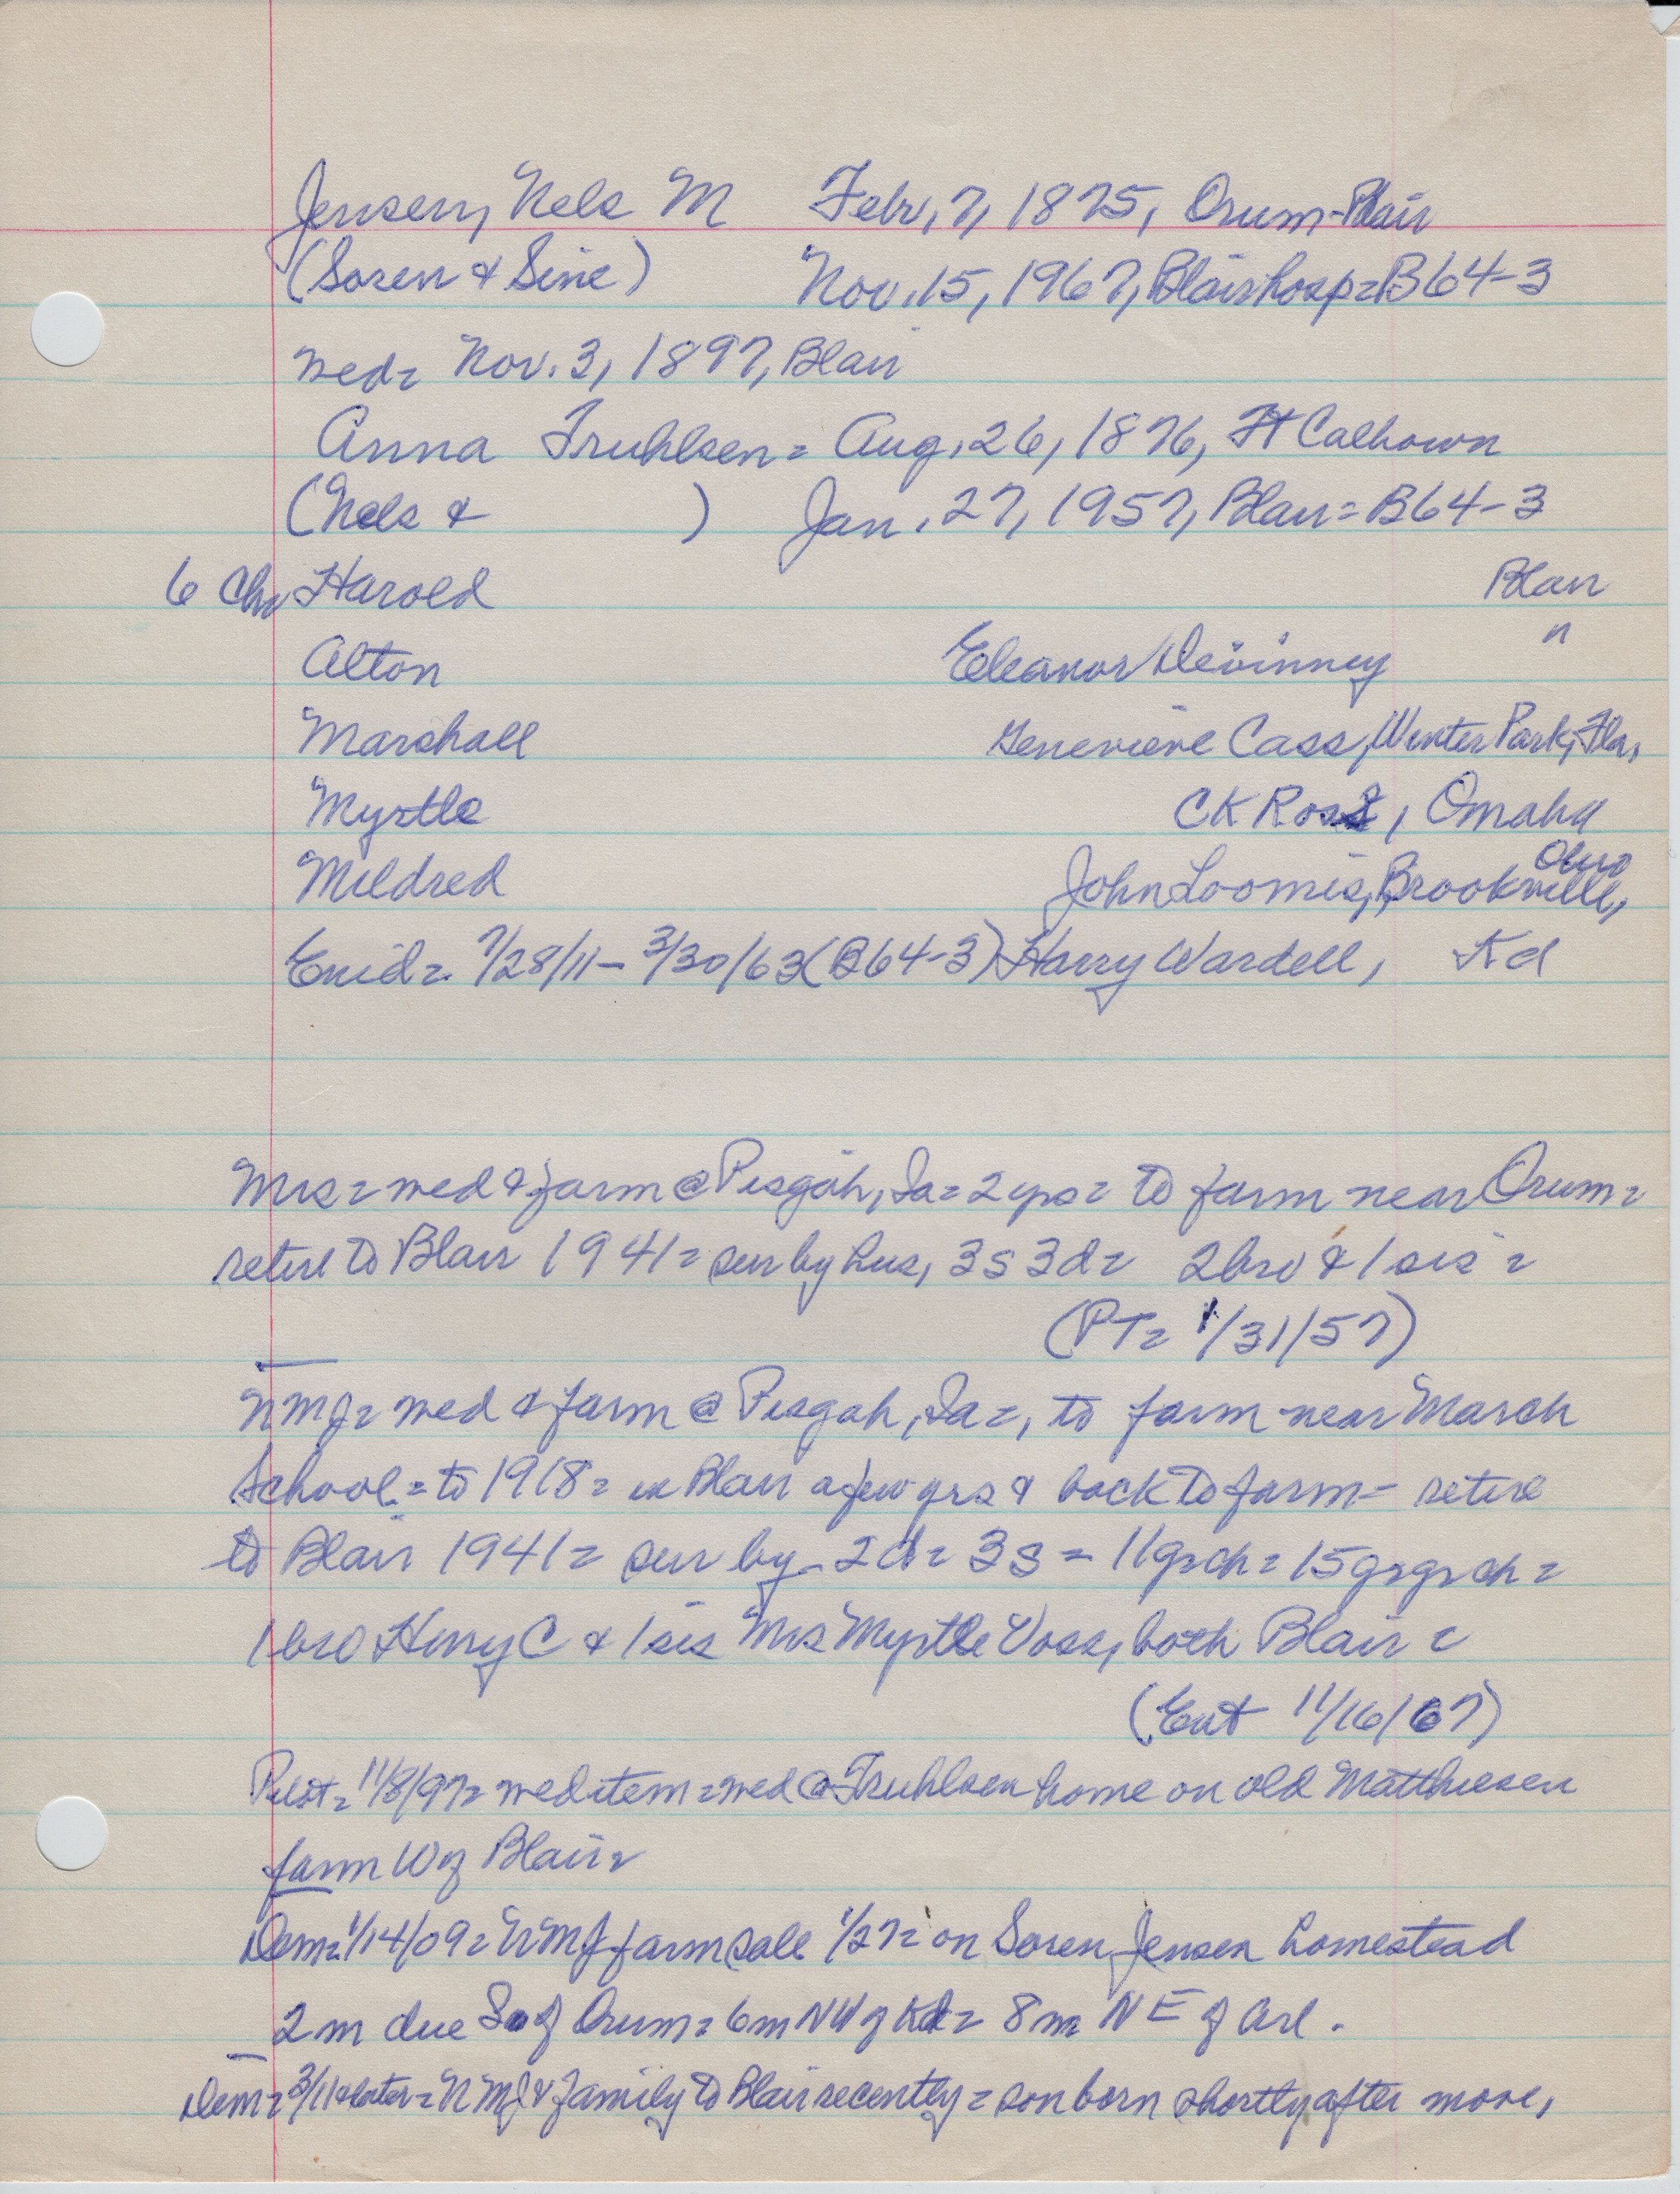 Jensen, Nels M Febr, 7, 1875, Orum-Blair
(Soren & Sine) Nov. 15, 1967, Blair hosp = B64-3
wed = Nov. 3, 1897, Blair
Anna Fruhlsen = Aug, 26, 1876, Ft Calhown
(Nels & ) Jan. 27, 1957, Blair = B64-3
6 Ch = Harold Blair
Alton Eleanor Devinney "
Marshall Genevieve Cass, Winter Park, Fla,
Myrtle CK Ross, Omaha
Mildred John Loomis, Brookville, Ohio
Enid = 7/28/11 - 3/30/63 (B64-3) Harry Wardell, Kd
Mrs = wed & farm @ Pisgah, Ia = 2 yrs = to farm near Orum =
retire to Blair 1941 = sur by hus, 3s 3d = 2 bro & 1 sis =
(PT = 1/31/57)
NMJ = wed & farm @ Pisgah, Ia =, to farm near March
School = to 1918 = in Blair a few yrs & back to farm - retire
to Blair 1941 = sur by 2d = 3s = 11grch = 15grgrch =
1 bro Henry C & 1 sis Mrs Myrtle Voss, both Blair =
(Ent 11/16/67)
Pilot = 11/8/97 = wed item = wed @ Fruhlsen home on old Matthiesen
farm W of Blair =
Dem = 1/14/09 = NMJ farm sale 1/27 = on Soren Jensen homestead
2 m due So of Orum = 6m NW of Kd = 8m NE of Arl.
Dem = 3/11 & later = NMJ & family to Blair recently = son born shortly after move,